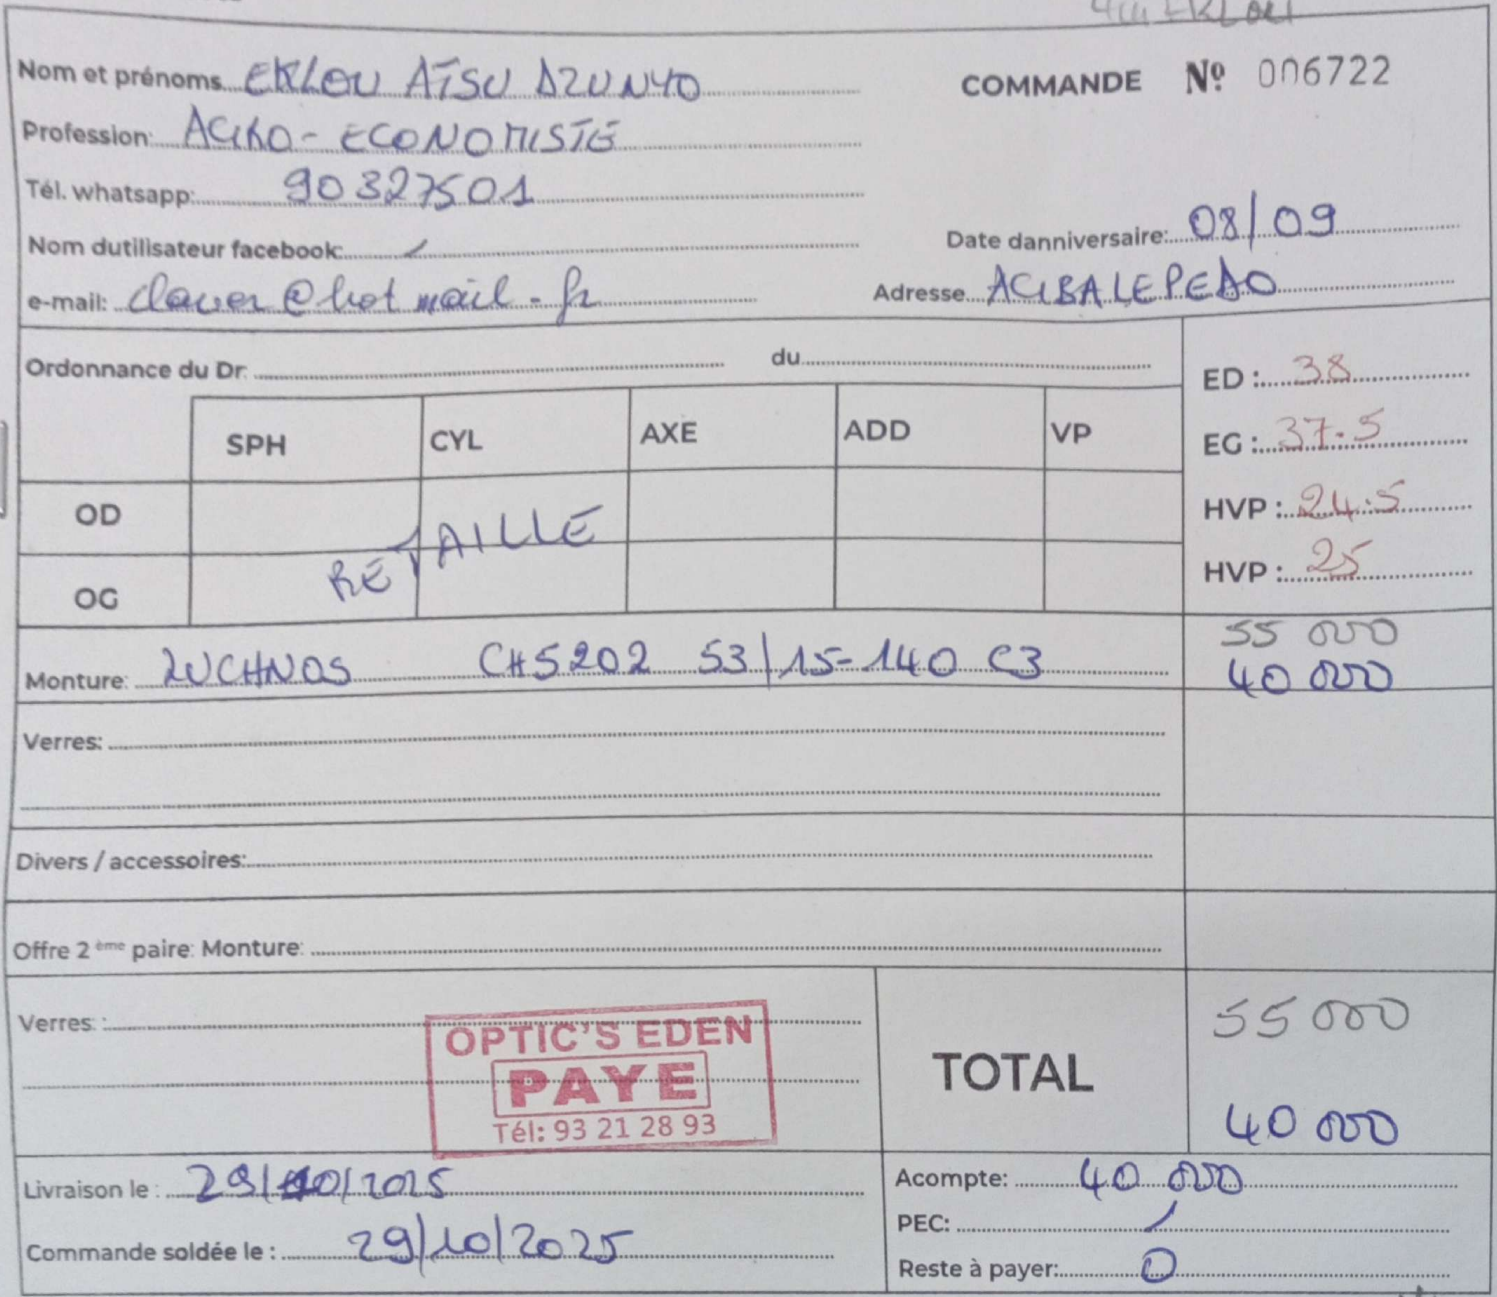 Nom et prénoms EKLOU ATSU DZUNYO
COMMANDE Nº 006722
Profession: AGRO-ECONOMISTE
Tél. whatsapp: 90327501
Nom dutilisateur facebook: /
Date danniversaire: 08/09
e-mail: claver@hotmail.fr
Adresse AGBALEPEDO
Ordonnance du Dr. du
ED : 38
SPH CYL AXE ADD VP
EG : 37.5
OD
HVP : 24.5
RETAILLE
OG
HVP : 25
55 000
Monture: LUCHNOS CH5202 53/15-140 C3 40 000
Verres:
Divers / accessoires:
Offre 2 ème paire: Monture:
Verres. :
OPTIC'S EDEN
PAYE
Tél: 93 21 28 93
TOTAL
55 000
40 000
Livraison le : 29/10/2025
Acompte: 40 000
PEC: /
Commande soldée le : 29/10/2025
Reste à payer: 0